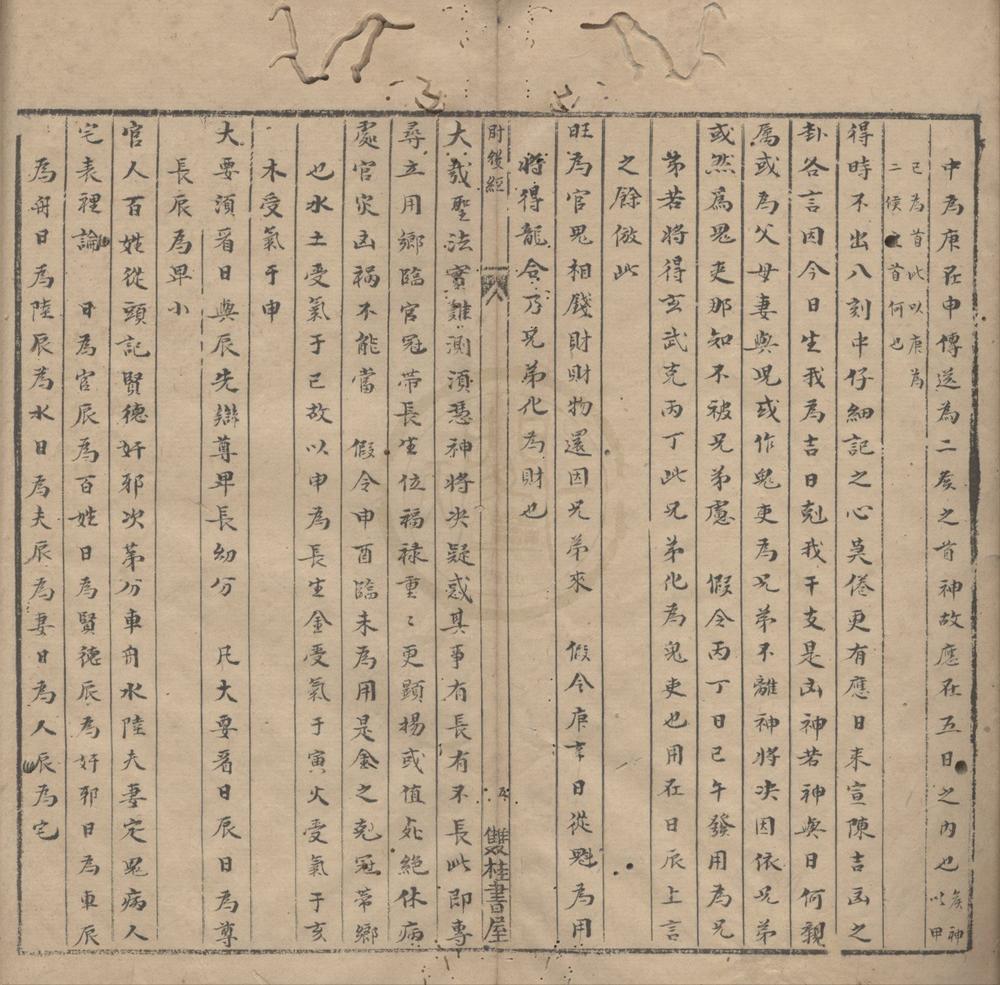 中為庚在申傳送為二矦之首神故應在五日之內也矦神以甲
己為首此以庚為二侯之首何也
得時不出八刻中仔細記之心莫倦更有應日来宣陳吉凶之
卦各言因今日生我為吉日剋我干支是凶神若神與日何親
属或為父母妻與児或作鬼吏為兄弟不離神將决因依兄弟
或然為鬼吏那知不被兄弟慮 假令丙丁日巳午發用為兄
苐若將得玄武克丙丁此兄弟化為鬼吏也用在日辰上言
之餘倣此
旺為官鬼相錢財財物還因兄弟來 假令庚辛日從魁為用
將得龍合乃兄弟化為財也
肘後經
雙桂書屋
大哉聖法實難測湏憑神將决疑惑其事有長有不長此即專
尋立用鄉臨官冠帶長生位福禄重〻更顕揚或值死絕休病
處官灾凶禍不能當 假令申酉臨未為用是金之剋冠帶鄉
也水土受氣于巳故以申為長生金受氣于寅火受氣于亥
木受氣于申
大要湏看日與辰先辯尊卑長幼分 凡大要看日辰日為尊
長辰為卑小
官人百姓從頭記賢德奸邪次苐分車舟水陸夫妻定鬼病人
宅表裡論 日為官辰為百姓日為賢德辰為奸邪日為車辰
為舟日為陸辰為水日為夫辰為妻日為人辰為宅